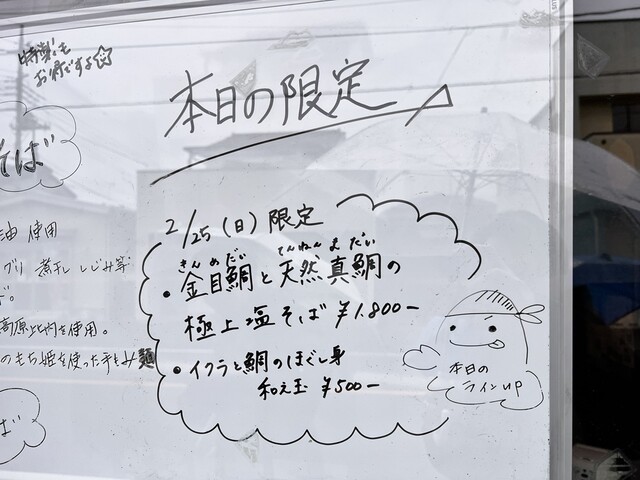 特製も
お得ですよ☆
本日の限定
そば
油使用
グリ 煮干 しじみ等
高原比内を使用。
のもち姫を使った手もみ麺
ば
2/25(日)限定
きんめだい てんねんまだい
・金目鯛と天然真鯛の
極上塩そば ¥1.800-
・イクラと鯛のほぐし身
和え玉 ¥500-
本日の
ラインup